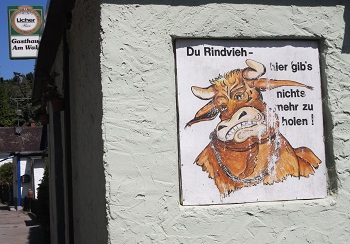 Licher
Gasthaus
Am Wald
Du Rindvieh -
hier gib's
nichts
mehr zu
holen !